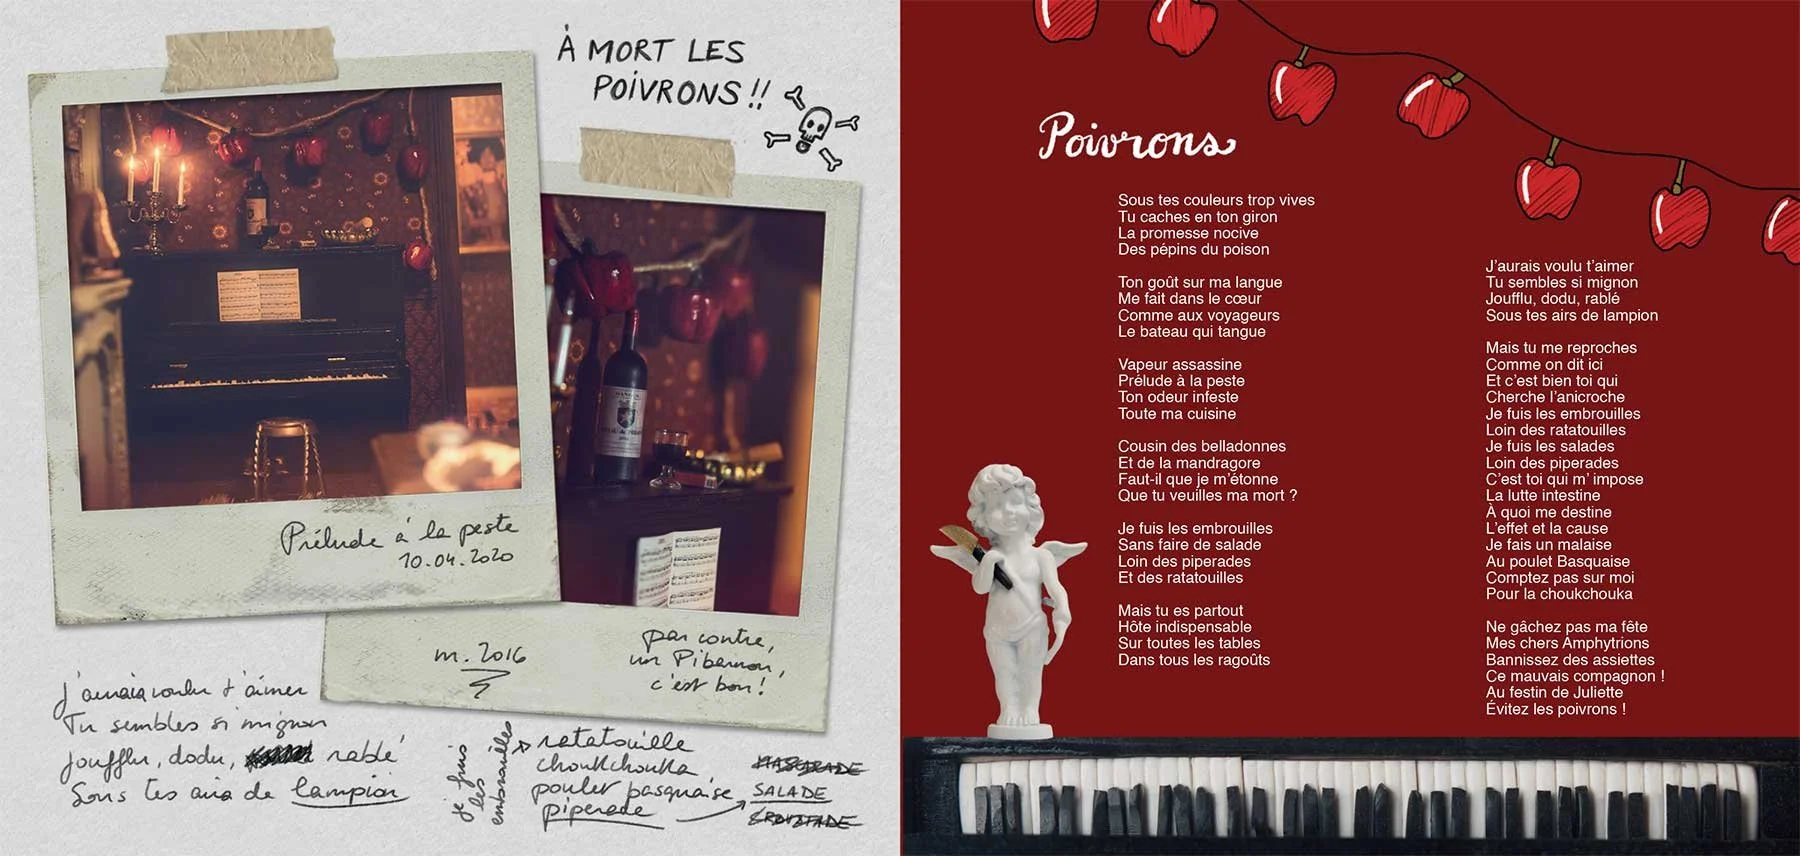 À MORT LES
POIVRONS !!
Prélude à la peste
10.04.2020
m. 2016
par contre,
un Pibarnon,
c'est bon !
j'aurais voulu t'aimer
Tu sembles si mignon
Joufflu, dodu, rablé
Sous tes airs de lampion
je fuis
les
embrouilles
ratatouille
choukchouka
poulet basquaise
piperade
MASCARADE
SALADE
Poivrons
Sous tes couleurs trop vives
Tu caches en ton giron
La promesse nocive
Des pépins du poison
Ton goût sur ma langue
Me fait dans le cœur
Comme aux voyageurs
Le bateau qui tangue
Vapeur assassine
Prélude à la peste
Ton odeur infeste
Toute ma cuisine
Cousin des belladonnes
Et de la mandragore
Faut-il que je m'étonne
Que tu veuilles ma mort ?
Je fuis les embrouilles
Sans faire de salade
Loin des piperades
Et des ratatouilles
Mais tu es partout
Hôte indispensable
Sur toutes les tables
Dans tous les ragoûts
J'aurais voulu t'aimer
Tu sembles si mignon
Joufflu, dodu, rablé
Sous tes airs de lampion
Mais tu me reproches
Comme on dit ici
Et c'est bien toi qui
Cherche l'anicroche
Je fuis les embrouilles
Loin des ratatouilles
Je fuis les salades
Loin des piperades
C'est toi qui m' impose
La lutte intestine
À quoi me destine
L'effet et la cause
Je fais un malaise
Au poulet Basquaise
Comptez pas sur moi
Pour la choukchouka
Ne gâchez pas ma fête
Mes chers Amphytrions
Bannissez des assiettes
Ce mauvais compagnon !
Au festin de Juliette
Évitez les poivrons !